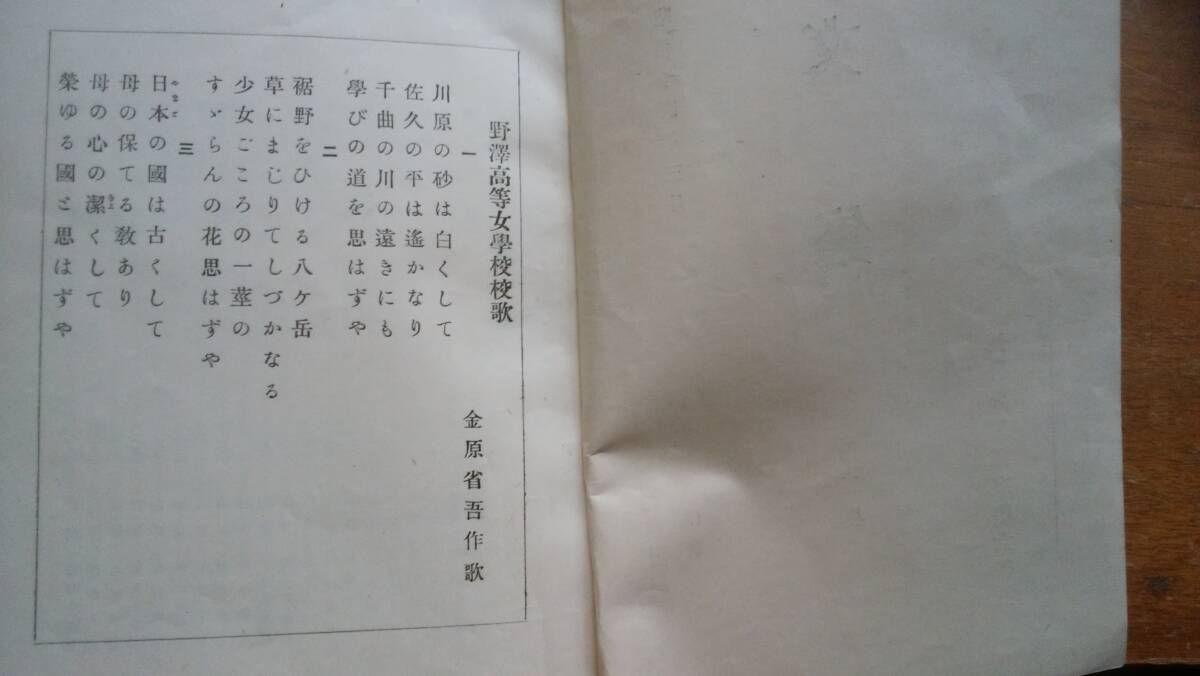 野澤高等女學校校歌
金原省吾作歌
一
川原の砂は白くして
佐久の平は遙かなり
千曲の川の遠きにも
學びの道を思はずや
二
裾野をひける八ケ岳
草にまじりてしづかなる
少女ごころの一莖の
すゞらんの花思はずや
三
日本の國は古くして
母の保てる敎あり
母の心の潔くして
榮ゆる國と思はずや